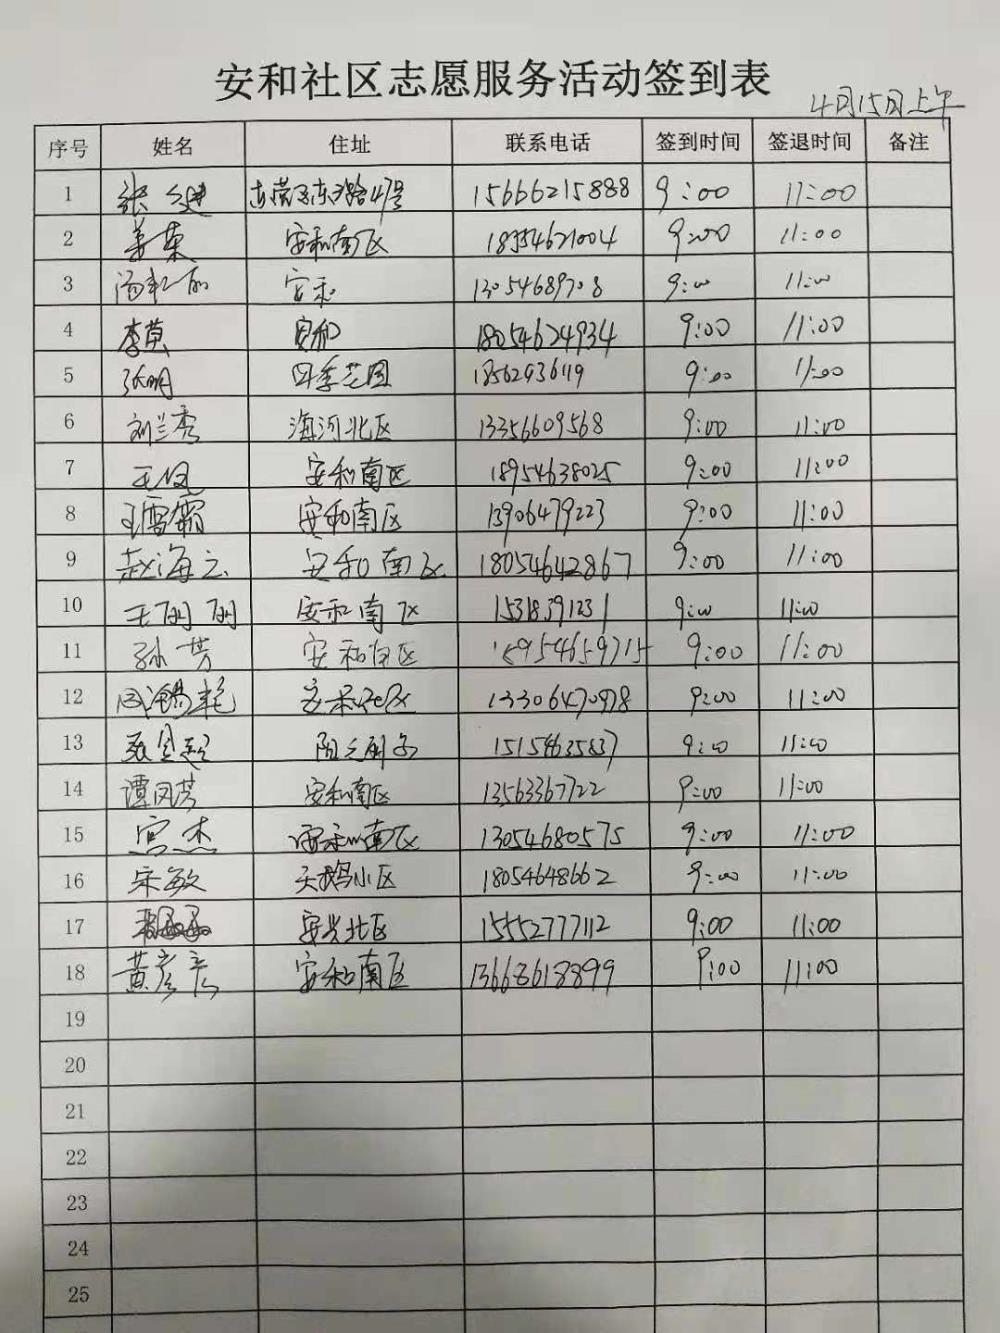 安和社区志愿服务活动签到表
4月15日上午
序号 姓名 住址 联系电话 签到时间 签退时间 备注
1 张 15666215888 9:00 11:00
2 姜東 安和南区 18354621004 9:00 11:00
3 安和 13054689708 9:00 11:00
4 李莫 安和 18054624934 9:00 11:00
5 张明 四季花园 18562936119 9:00 11:00
6 刘兰秀 海河北区 13356609568 9:00 11:00
7 王 安和南区 18954638025 9:00 11:00
8 王雪霜 安和南区 13906479223 9:00 11:00
9 赵海云 安和南区 18054642867 9:00 11:00
10 王丽丽 安和南区 15318391231 9:00 11:00
11 孙芳 安和南区 18954659715 9:00 11:00
12 安和 13306470978 9:00 11:00
13 9:00 11:00
14 谭凤芳 安和南区 13563367722 9:00 11:00
15 宫杰 安和南区 13054680575 9:00 11:00
16 宋敏 天鹅小区 18054648662 9:00 11:00
17 安兴北区 15552777112 9:00 11:00
18 黄彦彦 安和南区 9:00 11:00
19
20
21
22
23
24
25